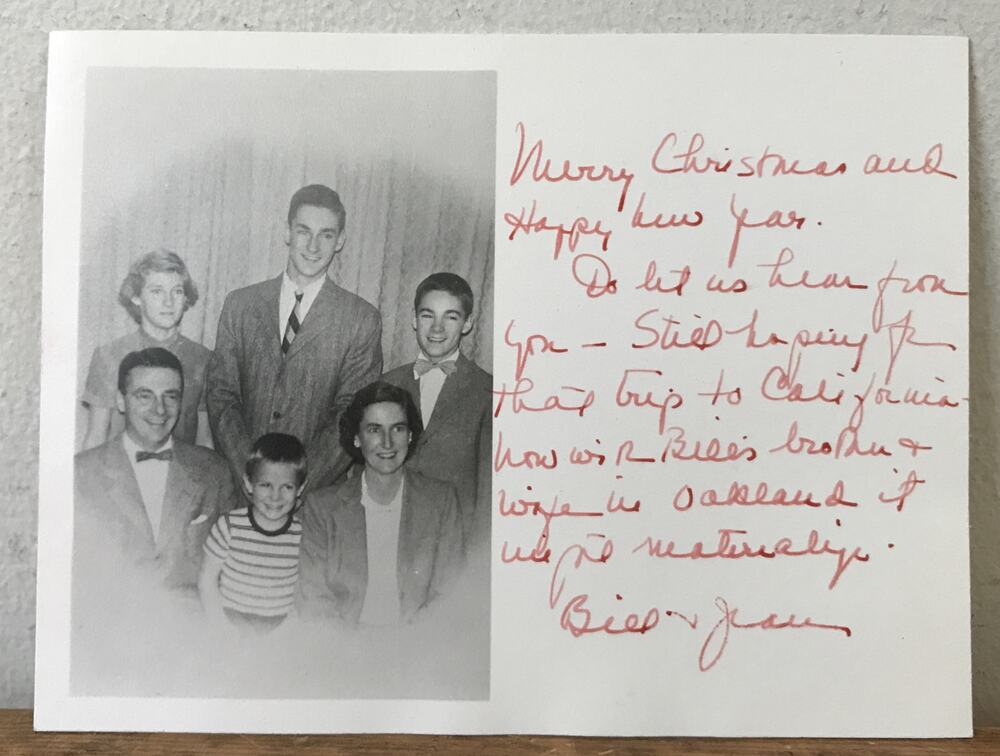 Merry Christmas and
Happy New Year.
Do let us hear from
you – Still hoping for
that trip to California –
now with Bill's brother &
wife in Oakland it
might materialize.
Bill & Jean